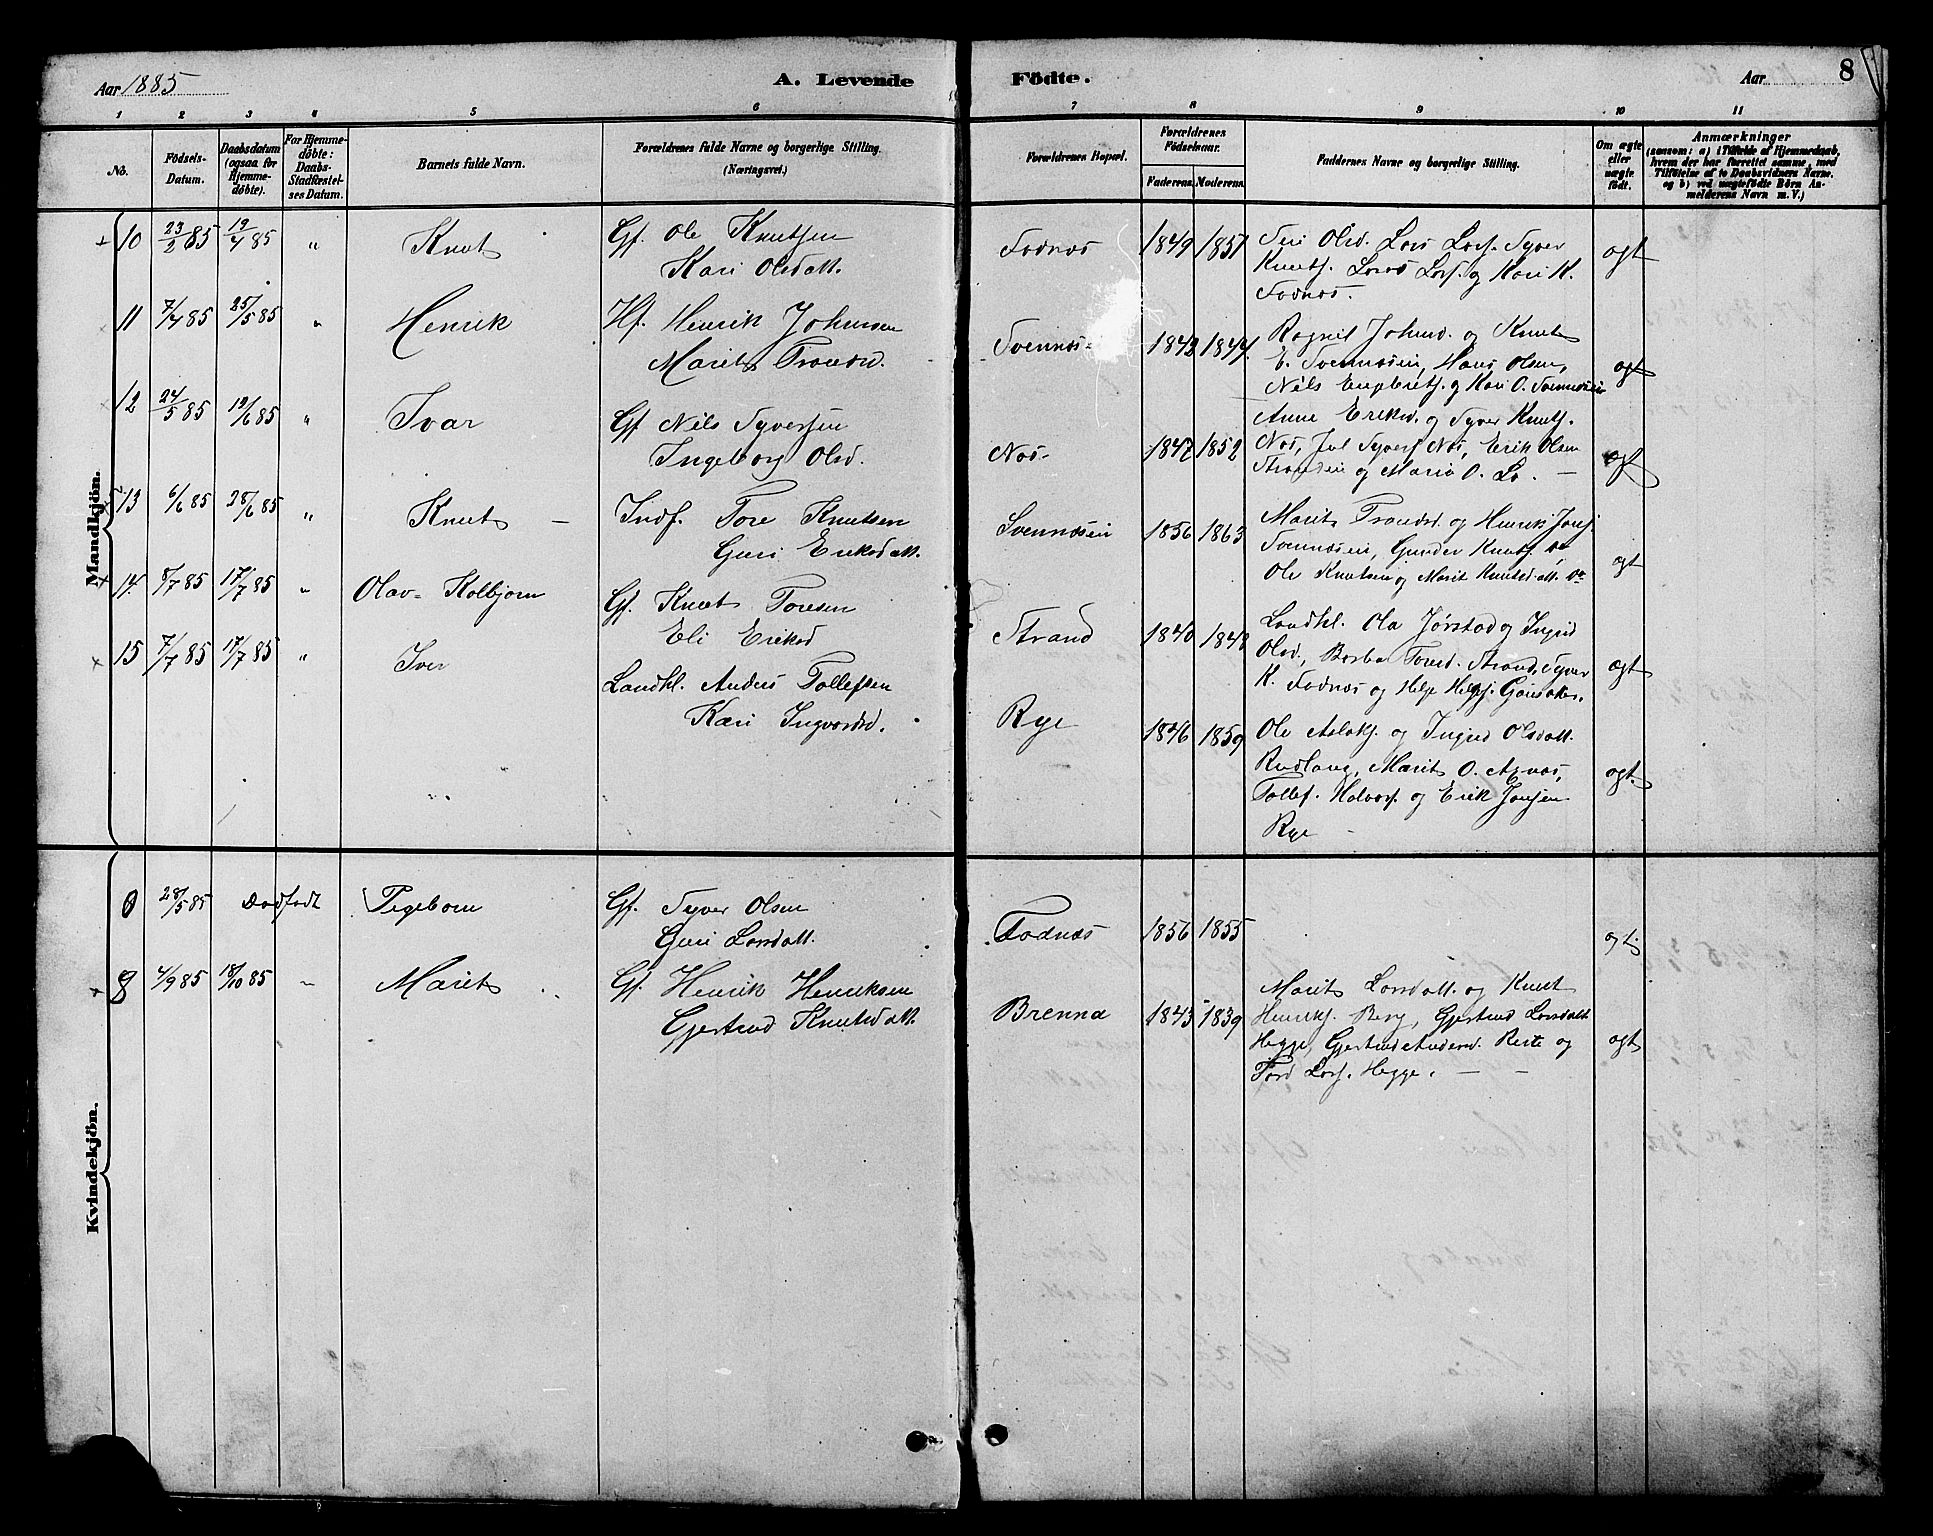 Aar 1885
A. Levende
Födte.
Aar
8
1 2 3 4 5 6 7 8 9 10 11
No.
Födsels-Datum.
Daabsdatum (ogsaa for Hjemme-döbte).
For Hjemme-döbte: Daabs-Stadfæstel-ses Datum.
Barnets fulde Navn.
Forældrenes fulde Navne og borgerlige Stilling. (Næringsvei.)
Forældrenes Bopæl.
Forældrenes Födselsaar.
Faderens. Moderens.
Faddernes Navne og borgerlige Stilling.
Om ægte eller uægte födt.
Anmærkninger
(saasom: a) i Tilfælde af Hjemmedaab,
hvem der har forrettet samme, med
Tilföielse af to Daabsvidners Navne.
og b) ved uægtefödte Börn An-
melderens Navn m. V.)
Mandkjön.
10 23/2 85 19/4 85 " Knut Gf. Ole Knutsen Fodnæs 1849 1851 Siri Olsd. Lars Larsf. Syver
Kari Olsdatt. Knutf. Lars Larsf. og Kari K. ægt
Fodnæs.
11 7/4 85 25/5 85 " Henrik Hf. Henrik Johnsen Svennæs 1842 1844 Ragnil Johnsd. og Knut
Marit Trondsd. E. Svennæsei, Hans Olsen, ægt
Nils Engebretf. og Kari O. Svennæsei
12 24/5 85 19/6 85 " Ivar Gf Nils Syversen Næs 1847 1852 Anne Eriksd. og Syver Knutf.
Ingeborg Olsd. Næs, Jul Syversf Næs, Erik Olsen ægt
Stranden og Maria O. Lo.
13 6/6 85 28/6 85 " Knut Indf. Tore Knutsen Svennæsei 1856 1863 Marit Trondsd. og Henrik Jonsf
Guri Eriksdatt. Svennæsei, Gunder Knutsf.
Ole Knutsen og Marit Knutsdatt. ægt
14. 8/7 85 17/7 85 " Olav Kolbjørn Gf. Knut Toresen Strand 1840 1843 Landhl. Ola Jørstad og Ingrid
Eli Eriksd Olsd, Barbo Toresd. Strand, Syver ægt
K. Fodnæs og Helge Helgesf.
15 7/7 85 17/7 85 " Iver Landhl. Anders Tollefsen Rye 1846 1859 Ole Aslakf. og Ingrid Olsdatt.
Kari Ingvarsd. Rudlang, Marit O. ægt.
Tollef Halvorsf. og Erik Jonsen
Rye
Kvindekjön.
0 28/5 85 Dødfødt Pigebarn Gf. Syver Olsen Fodnæs 1856 1855 ægt.
Guri Larsdatt.
8 4/9 85 18/10 85 " Marit Gf. Henrik Henriksen Brenna 1843 1839 Marit Larsdatt. og Knut
Gjertrud Knutsdatt. Henrikf. Berg, Gjertrud Larsdatt
Hegge, Gjertrud Andersd. Reste og ægt
Tord Larsf. Hegge.